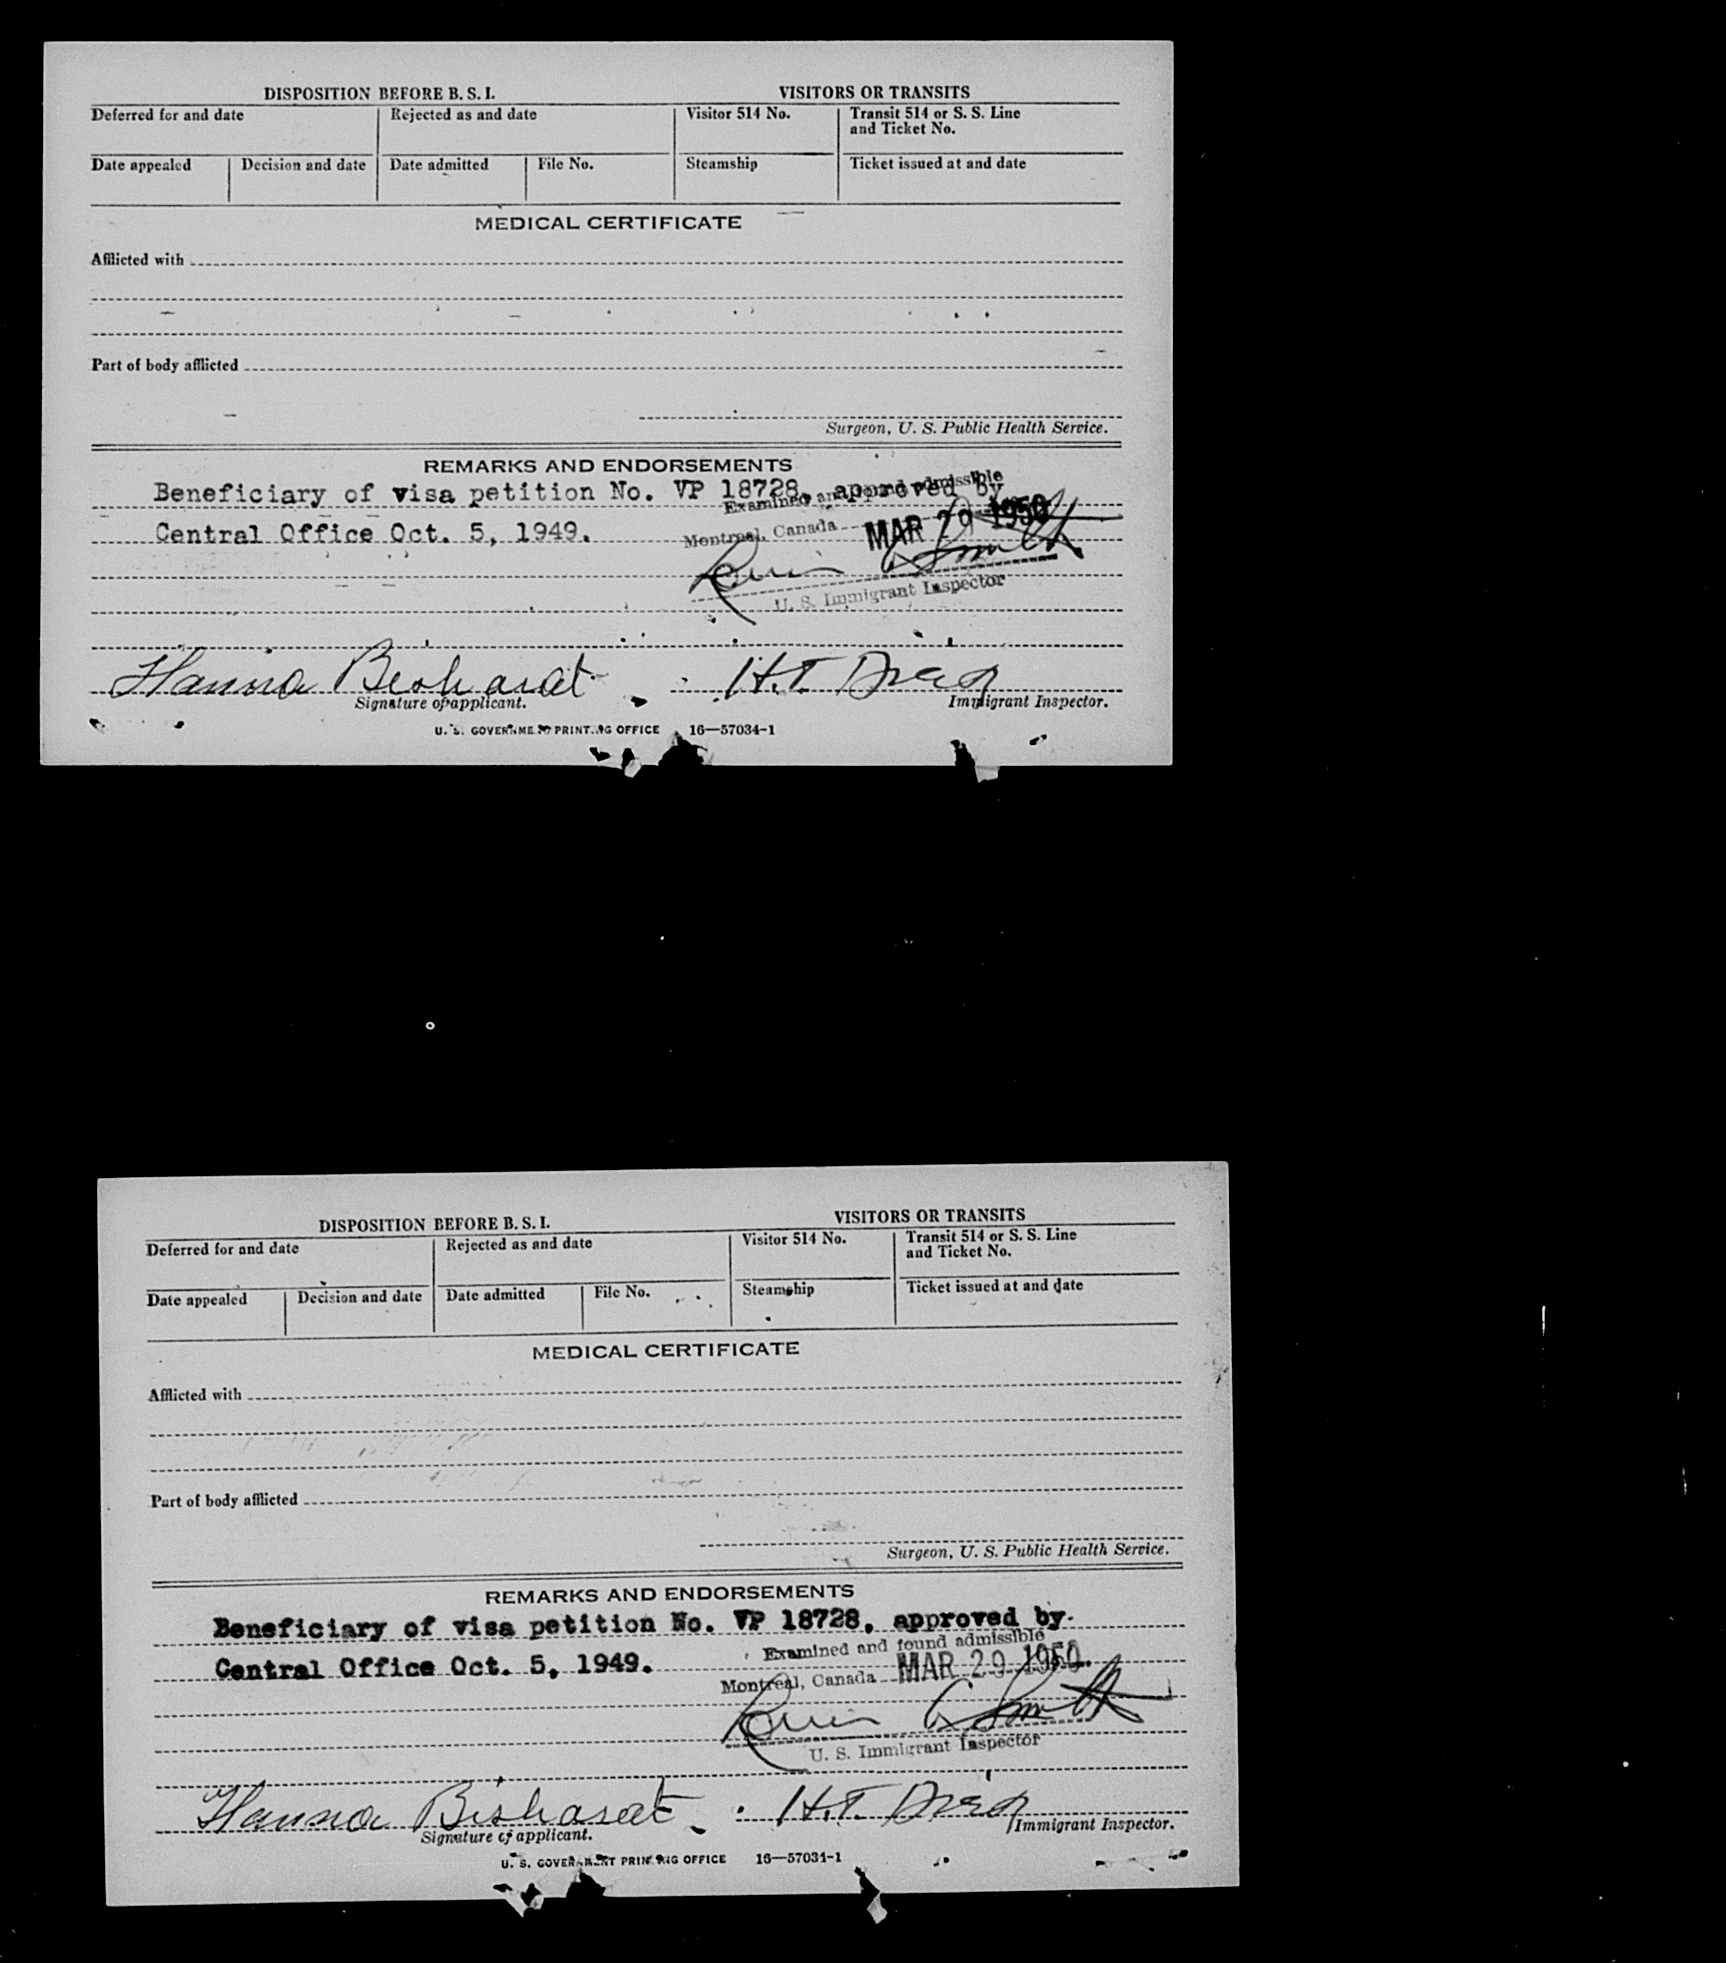 DISPOSITION BEFORE B. S. I.
VISITORS OR TRANSITS
Deferred for and date
Rejected as and date
Visitor 514 No.
Transit 514 or S. S. Line
and Ticket No.
Date appealed
Decision and date
Date admitted
File No.
Steamship
Ticket issued at and date
MEDICAL CERTIFICATE
Afflicted with
Part of body afflicted
Surgeon, U. S. Public Health Service.
REMARKS AND ENDORSEMENTS
Beneficiary of visa petition No. VP 18728, approved by
Examined and found admissible
Central Office Oct. 5, 1949.
Montreal, Canada MAR 29 1950
Smith
U. S. Immigrant Inspector
Hanna Bisharat
H.T.
Signature of applicant.
Immigrant Inspector.
U. S. GOVERNMENT PRINTING OFFICE 16—57034-1
DISPOSITION BEFORE B. S. I.
VISITORS OR TRANSITS
Deferred for and date
Rejected as and date
Visitor 514 No.
Transit 514 or S. S. Line
and Ticket No.
Date appealed
Decision and date
Date admitted
File No.
Steamship
Ticket issued at and date
MEDICAL CERTIFICATE
Afflicted with
Part of body afflicted
Surgeon, U. S. Public Health Service.
REMARKS AND ENDORSEMENTS
Beneficiary of visa petition No. VP 18728, approved by
Examined and found admissible
Central Office Oct. 5, 1949.
Montreal, Canada MAR 29 1950
Smith
U. S. Immigrant Inspector
Hanna Bisharat
H.T.
Signature of applicant.
Immigrant Inspector.
U. S. GOVERNMENT PRINTING OFFICE 16—57034-1